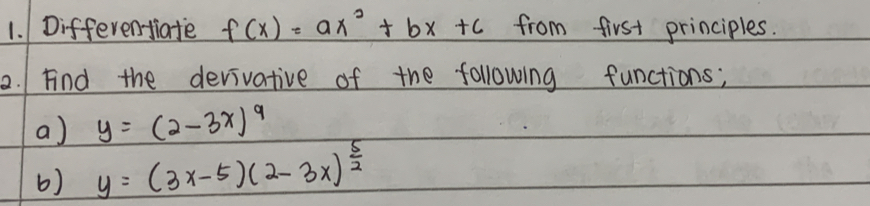 1. Differentiate f(x) = ax² + bx + c from first principles.
2. Find the derivative of the following functions;
a) y = (2-3x)⁹
b) y = (3x-5)(2-3x)^(5/2)